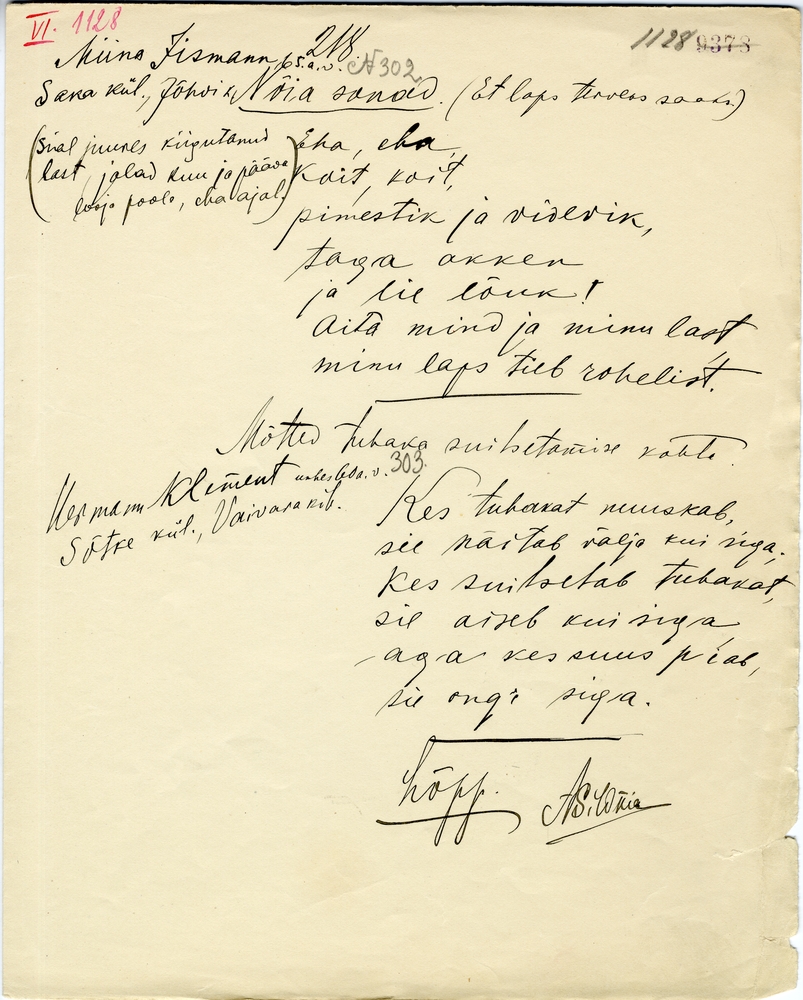 VI. 1128
1128 9373
218.
Miina Fismann, 65.a.v. N302
Saka kül., Jõhvi k. Nõia sõnad. (Et laps terveks saaks)
(Sial juures kiigutanud
last, jalad kuu ja pääva
looja poole, eha ajal.)
Eha, eha,
Koit, koit,
pimestik ja videvik,
taga akken
ja lie lõuk!
Aita mind ja minu last,
minu laps tieb rohelist.
Mõtted tubaka suitsetamise kohta.
303.
Hermann Klement
Sõtke kül., Vaivara kih.
Kes tubakat nuuskab,
sie näitab välja kui siga;
Kes suitsetab tubakat,
sie aiseb kui siga,
aga kes suus p'iab,
sie ong'i siga.
Lõpp.